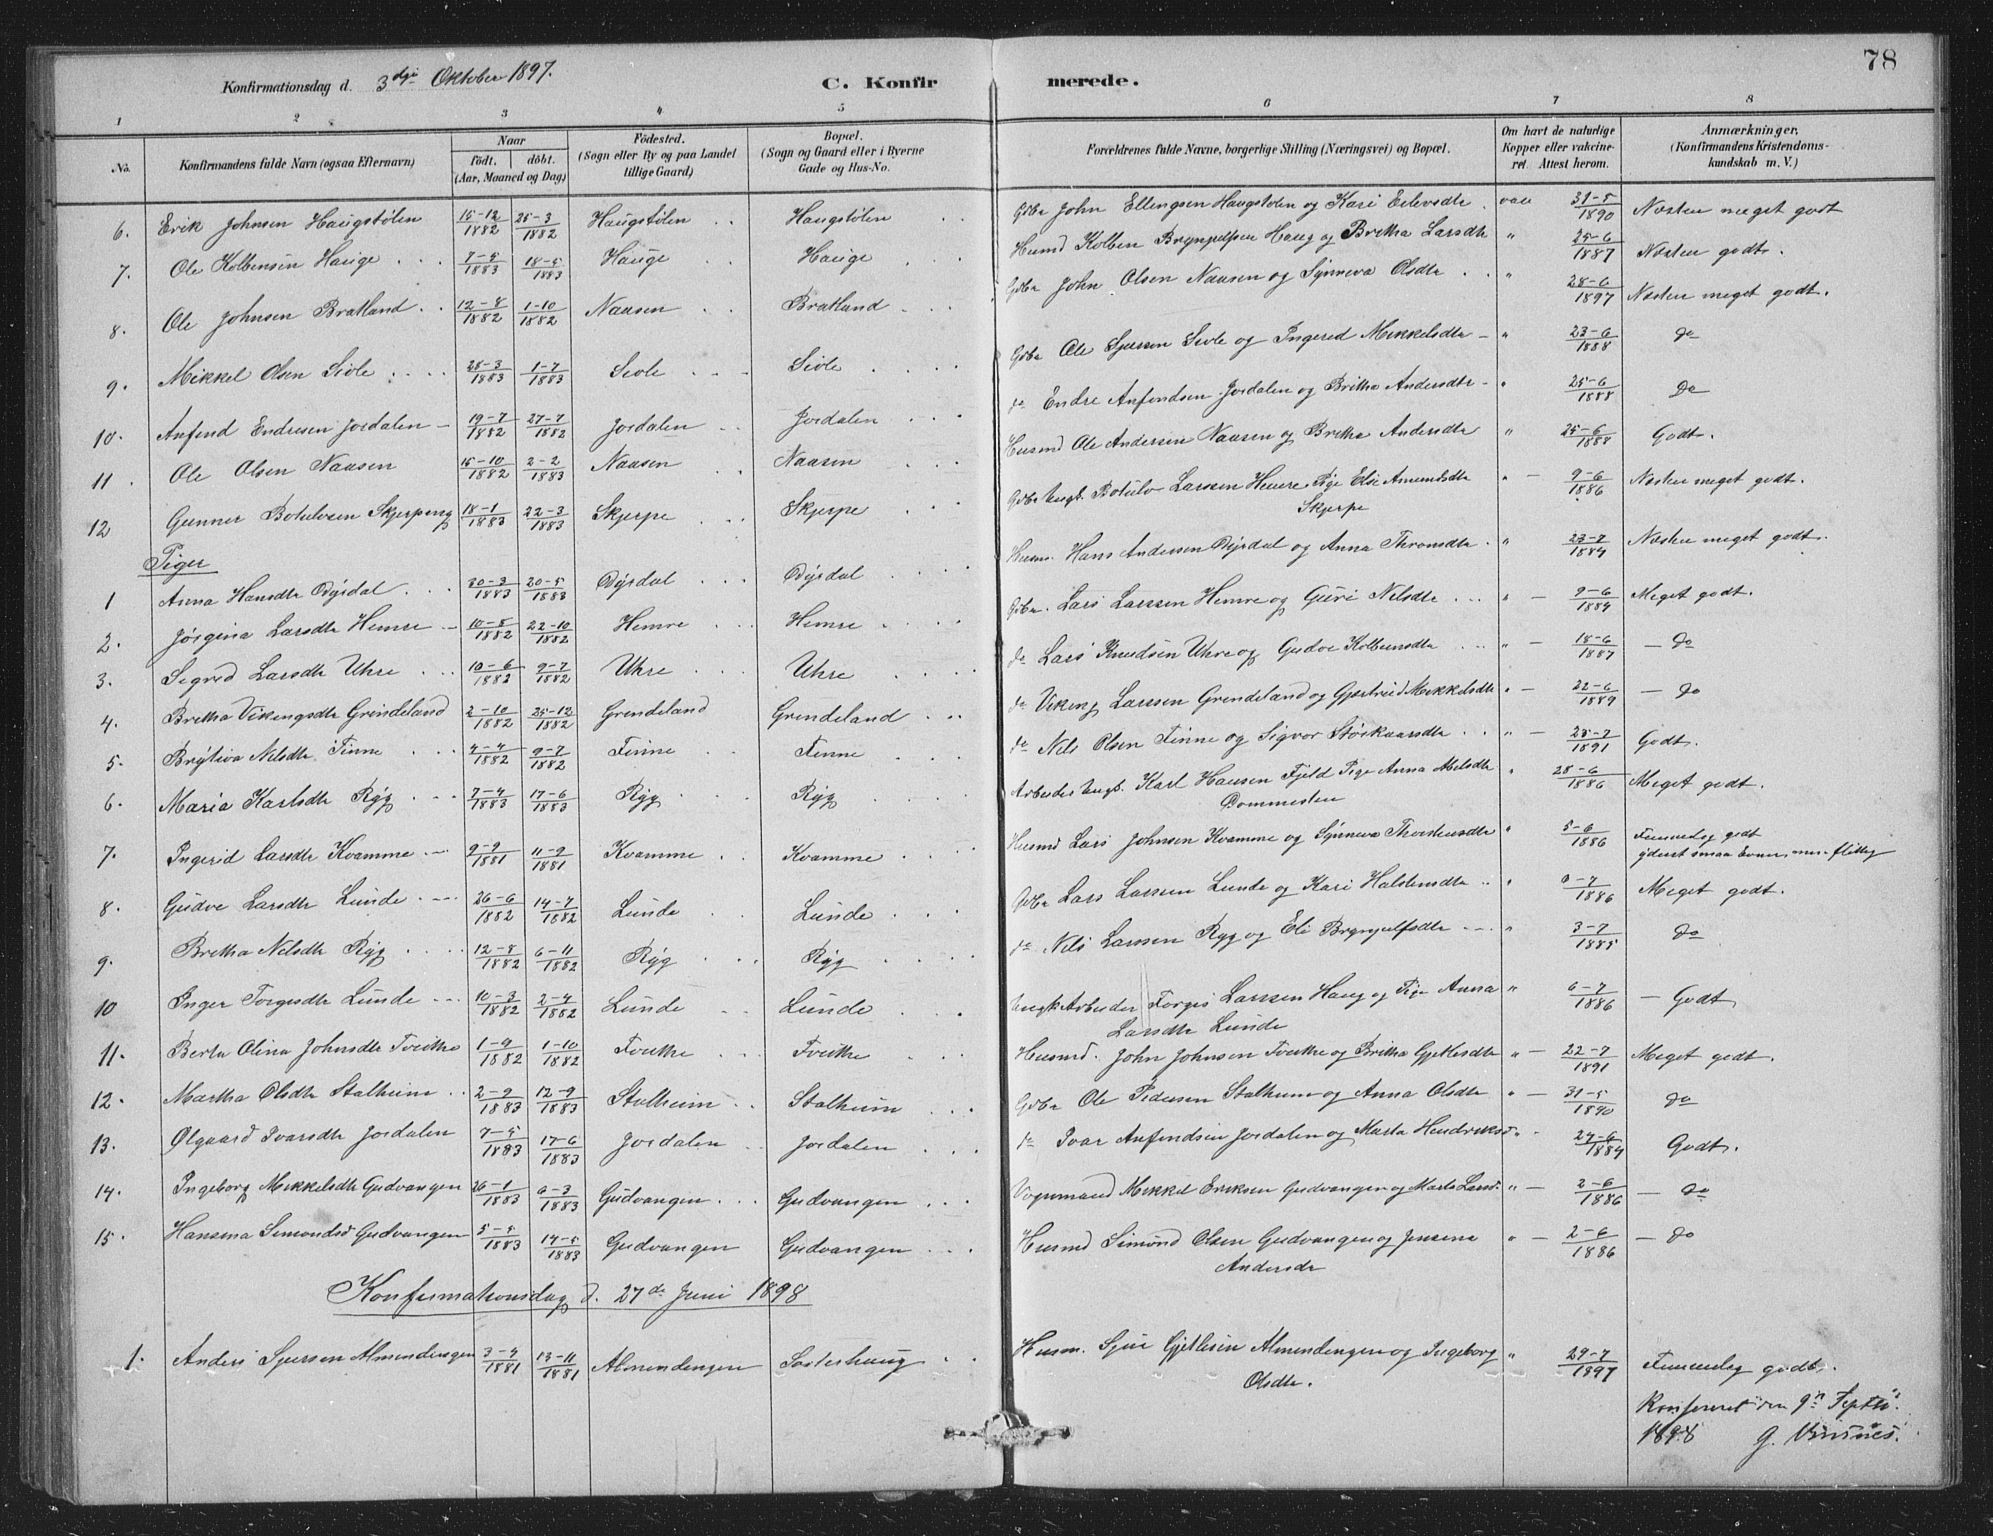 78
Konfirmationsdag d. 3die Oktober 1897.
C. Konfirmerede.
1 2 3 4 5 6 7 8
No. Konfirmandens fulde Navn (ogsaa Efternavn) Naar födt. döbt. (Aar, Maaned og Dag) Födested. (Sogn eller By og paa Landet tillige Gaard) Bopæl. (Sogn og Gaard eller i Byerne Gade og Hus-No. Forældrenes fulde Navne, borgerlige Stilling (Næringsvei) og Bopæl. Om havt de naturlige Kopper eller vakcineret. Attest herom. Anmærkninger, (Konfirmandens Kristendomskundskab m. V.)
6. Erik Johnsen Haugstølen 15-12 1882 25-3 1882 Haugstølen Haugstølen Gdbr John Ellingsen Haugstølen og Kari Eilevsdtr vac 31-5 1890 Næsten meget godt
7. Ole Kolbensen Hauge 7-5 1883 18-5 1883 Hauge Hauge Husmd Kolben Brynjulfsen Haug og Britha Larsdtr " 25-6 1887 Næsten godt.
8. Ole Johnsen Bratland 12-8 1882 1-10 1882 Naasen Bratland Gdbr John Olsen Naasen og Synneva Olsdtr " 28-6 1897 Næsten meget godt.
9. Mikkel Olsen Sivle 28-3 1883 1-7 1883 Sivle Sivle Gdbr Ole Sjursen Sivle og Ingerid Mikkelsdtr " 23-6 1888 do
10. Anfind Endresen Jordalen 19-7 1882 27-7 1882 Jordalen Jordalen do Endre Anfindsen Jordalen og Britha Andersdtr " 25-6 1888 do
11. Ole Olsen Naasen 15-10 1882 2-2 1883 Naasen Naasen Husmd Ole Andersen Naasen og Britha Andersdtr " 25-6 1888 Godt.
12. Gunner Botulvsen Skjerpeng 18-1 1883 22-3 1883 Skjerpe Skjerpe Gdbr Ungk. Botulv Larssen Hemre Pige Elsi Amundsdtr Skjerpe " 9-6 1886 Næsten meget godt.
Piger
1 Anna Hansdtr Øyrdal 30-3 1883 20-5 1883 Øyrdal Øyrdal Husm. Hans Andersen Øyrdal og Anna Thronsdtr " 23-7 1884 Næsten meget godt.
2. Jørgina Larsdtr Hemre 10-8 1882 22-10 1882 Hemre Hemre Gdbr. Lars Larssen Hemre og Guri Nilsdtr " 9-6 1884 Meget godt.
3. Sigrid Larsdtr Uhre 10-6 1882 9-7 1882 Uhre Uhre do Lars Knudsen Uhre og Gudve Kolbensdtr " 18-6 1887 do
4. Britha Vikingsdtr Grindeland 2-10 1882 25-12 1882 Grindeland Grindeland do Viking Larssen Grindeland og Gjertrud Mikkelsdtr " 22-6 1889 do
5. Brytiva Nilsdtr Finne 4-4 1882 9-7 1882 Finne Finne do Nils Olsen Finne og Sigvor Störkaarsdtr " 28-7 1891 Godt.
6. Maria Karlsdtr Ryg 7-4 1883 17-6 1883 Ryg Ryg Arbeider Ungk. Karl Hansen Fjeld Pige Anna Nilsdtr Dommesten " 28-6 1886 Meget godt.
7. Ingerid Larsdtr Kvamme 9-9 1881 11-9 1881 Kvamme Kvamme Husmd Lars Johnsen Kvamme og Synneva Thorstensdtr " 5-6 1886 Temmelig godt yderst smaa Evner, men flittig
8. Gudve Larsdtr Lunde 26-6 1882 14-7 1882 Lunde Lunde Gdbr Lars Larssen Lunde og Kari Halstensdtr " 6-7 1886 Meget godt.
9. Britha Nilsdtr Ryg 12-8 1882 6-11 1882 Ryg Ryg do Nils Larssen Ryg og Eli Brynjulfsdtr " 3-7 1885 do
10 Inger Torgisdtr Lunde 10-3 1882 2-4 1882 Lunde Lunde Ungk. Arbeider Torgis Larssen Haug og Pige Anna Larsdtr Lunde " 6-7 1886 Godt
11. Berta Olina Johnsdtr Tveithe 1-9 1882 1-10 1882 Tveithe Tveithe Husmd. John Johnsen Tveithe og Britha Gjetlesdtr " 22-7 1891 Meget godt.
12. Martha Olsdtr Stalheim 2-9 1883 12-9 1883 Stalheim Stalheim Gdbr Ole Pedersen Stalheim og Anna Olsdtr " 31-5 1890 do
13. Olgaard Ivarsdtr Jordalen 7-5 1883 17-6 1883 Jordalen Jordalen do Ivar Anfindsen Jordalen og Marta Hendriksd " 24-6 1884 Godt.
14. Ingeborg Mikkelsdtr Gudvangen 26-1 1883 6-3 1883 Gudvangen Gudvangen Vognmand Mikkel Eriksen Gudvangen og Marta Larsd. " 2-6 1886 do
15. Hansina Simondsd Gudvangen 5-5 1883 14-5 1883 Gudvangen Gudvangen Husmd Simond Olsen Gudvangen og Jensine Andersdr " 2-6 1886 do
Konfirmationsdag d. 27de Juni 1898
1. Anders Sjursen Almendingen 3-4 1881 13-11 1881 Almendingen Sosterhaug Husm. Sjur Gjetlesen Almendingen og Ingeborg Olsdtr. " 29-7 1897 Temmelig godt.
Konfereret den 9n Septbr.
1898 G.